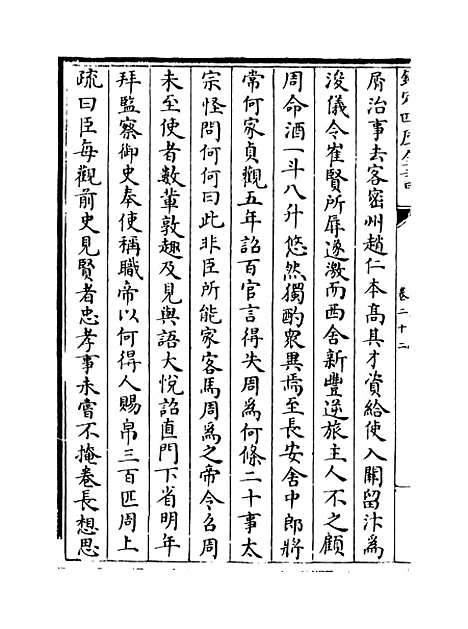 欽定四庫全書
卷二十二
屑治事去客密州趙仁本髙其才資給使入關留汴爲
浚儀令崔賢所辱遂激而西舍新豐逆旅主人不之顧
周命酒一斗八升悠然獨酌衆異焉至長安舍中郎將
常何家貞觀五年詔百官言得失周爲何條二十事太
宗怪問何何曰此非臣所能家客馬周爲之帝令召周
未至使者數輩敦趣及見與語大悅詔直門下省明年
拜監察御史奉使稱職帝以何得人賜帛三百匹周上
疏曰臣每觀前史見賢者忠孝事未嘗不掩卷長想思